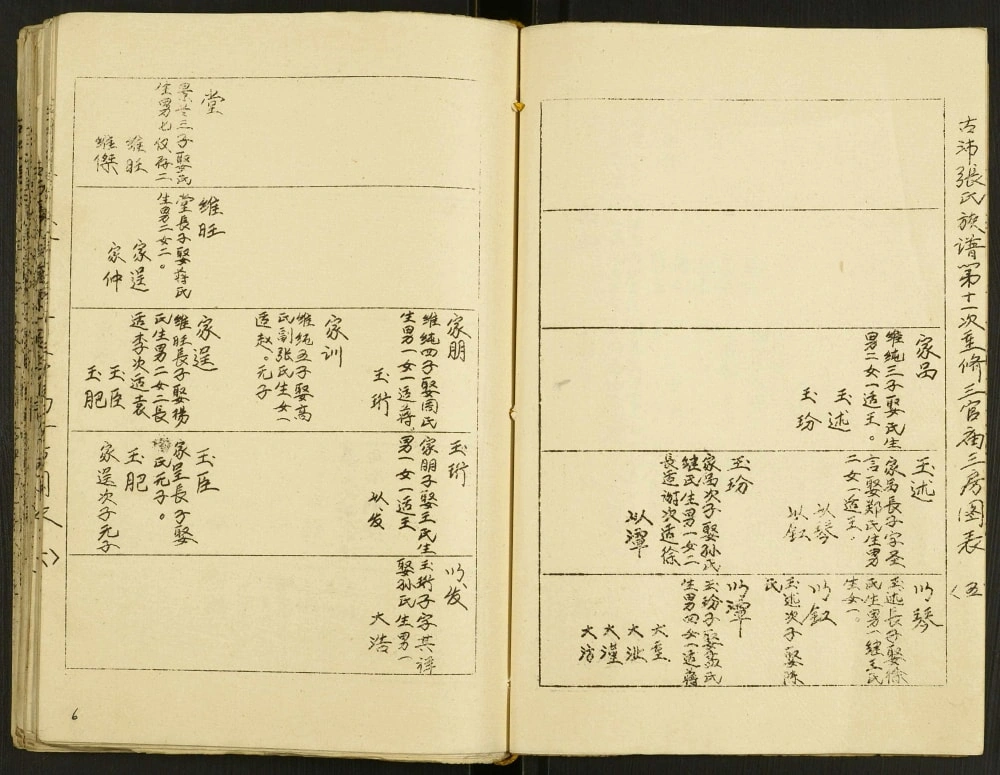 古沛張氏族譜第十一次重修三官庙三房图表
〈五〉
家昌
維純三子娶氏生
男二女一适王。
玉述
玉玢
玉述
家昌長子字圣
言娶郑氏生男
二女一适王。
以琴
以釭
玉玢
家昌次子娶孙氏
継氏生男一女二
長适谢次适徐
以潭
以琴
玉述長子娶徐
氏生男一継王氏
生女一。
以釭
玉述次子娶陈
氏
以潭
玉玢子娶氏
生男四女一适蔣
大重
大
大
大
家朋
維純四子娶周氏
生男一女一适蔣
玉珩
家训
維純五子娶高
氏副张氏生女一
适赵。元子
玉珩
家朋子娶王氏生
男一女一适王
以发
以发
玉珩子字其祥
娶孙氏生男一
大浩
堂
三子娶氏
生男七仅存二
維旺
維傑
維旺
堂長子娶蒋氏
生男二女二。
家逞
家仲
家逞
維旺長子娶楊
氏生男二女二長
适李次适袁
玉臣
玉肥
玉臣
家呈長子娶
氏元子。
玉肥
家逞次子元子
6